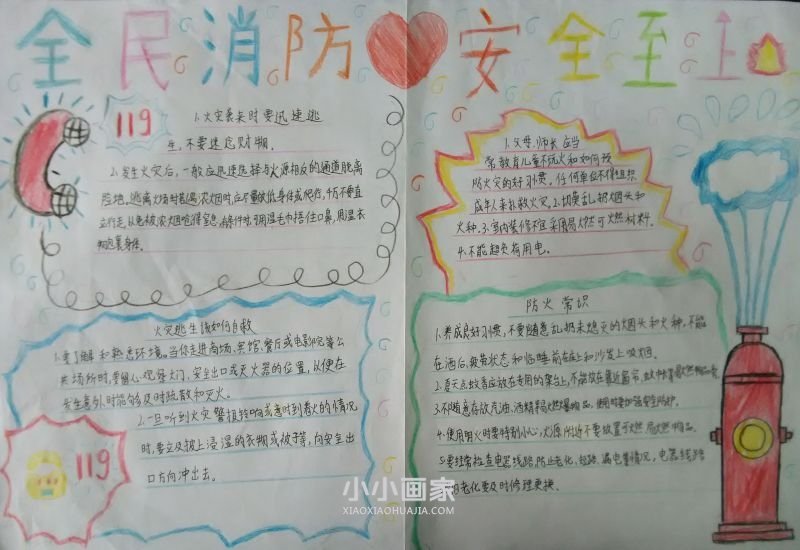 全民消防安全至上
119
1.火灾袭来时要迅速逃
生,不要迷恋财物。
2.发生火灾后,一般应迅速选择与火源相反的通道脱离
险地,逃离火场时若遇浓烟时,应尽量放低身体或爬行,千万不要直
立行走,以免被浓烟呛得窒息。有条件时,用湿毛巾捂住口鼻,用湿衣
物包裹身体。
1.父母、师长应当
常教育儿童不玩火和如何预
防火灾的好习惯,任何单位不得组织
成年人来扑救火灾。2.切莫乱扔烟头和
火种。3.室内装修不宜采用易燃可燃材料。
4.不能超负荷用电。
火灾逃生该如何自救
1.要了解和熟悉环境。当你走进商场、宾馆、餐厅或电影院等公
共场所时,要留心观察大门、安全出口或灭火器的位置,以便在
发生意外时能够及时疏散和灭火。
2.一旦听到火灾警报铃响或意识到着火的情况
时,要立及披上浸湿的衣物或被子等,向安全出
口方向冲出去。
119
防火常识
1.养成良好习惯,不要随意乱扔未熄灭的烟头和火种,不能
在酒后、疲劳状态和临睡前在床上和沙发上吸烟。
2.夏天点蚊香应放在专用的架台上,不能放在靠近窗帘、蚊帐等易燃物品旁
3.不随意存放汽油、酒精等易燃易爆物品,使用时要加强安全防护。
4.使用明火时要特别小心,火源附近不要放置可燃、易燃物品。
5.要经常检查电器线路,防止老化、短路、漏电等情况,电器线路
老化要及时修理更换。
小小画家
XIAOXIAOHUAJIA.COM